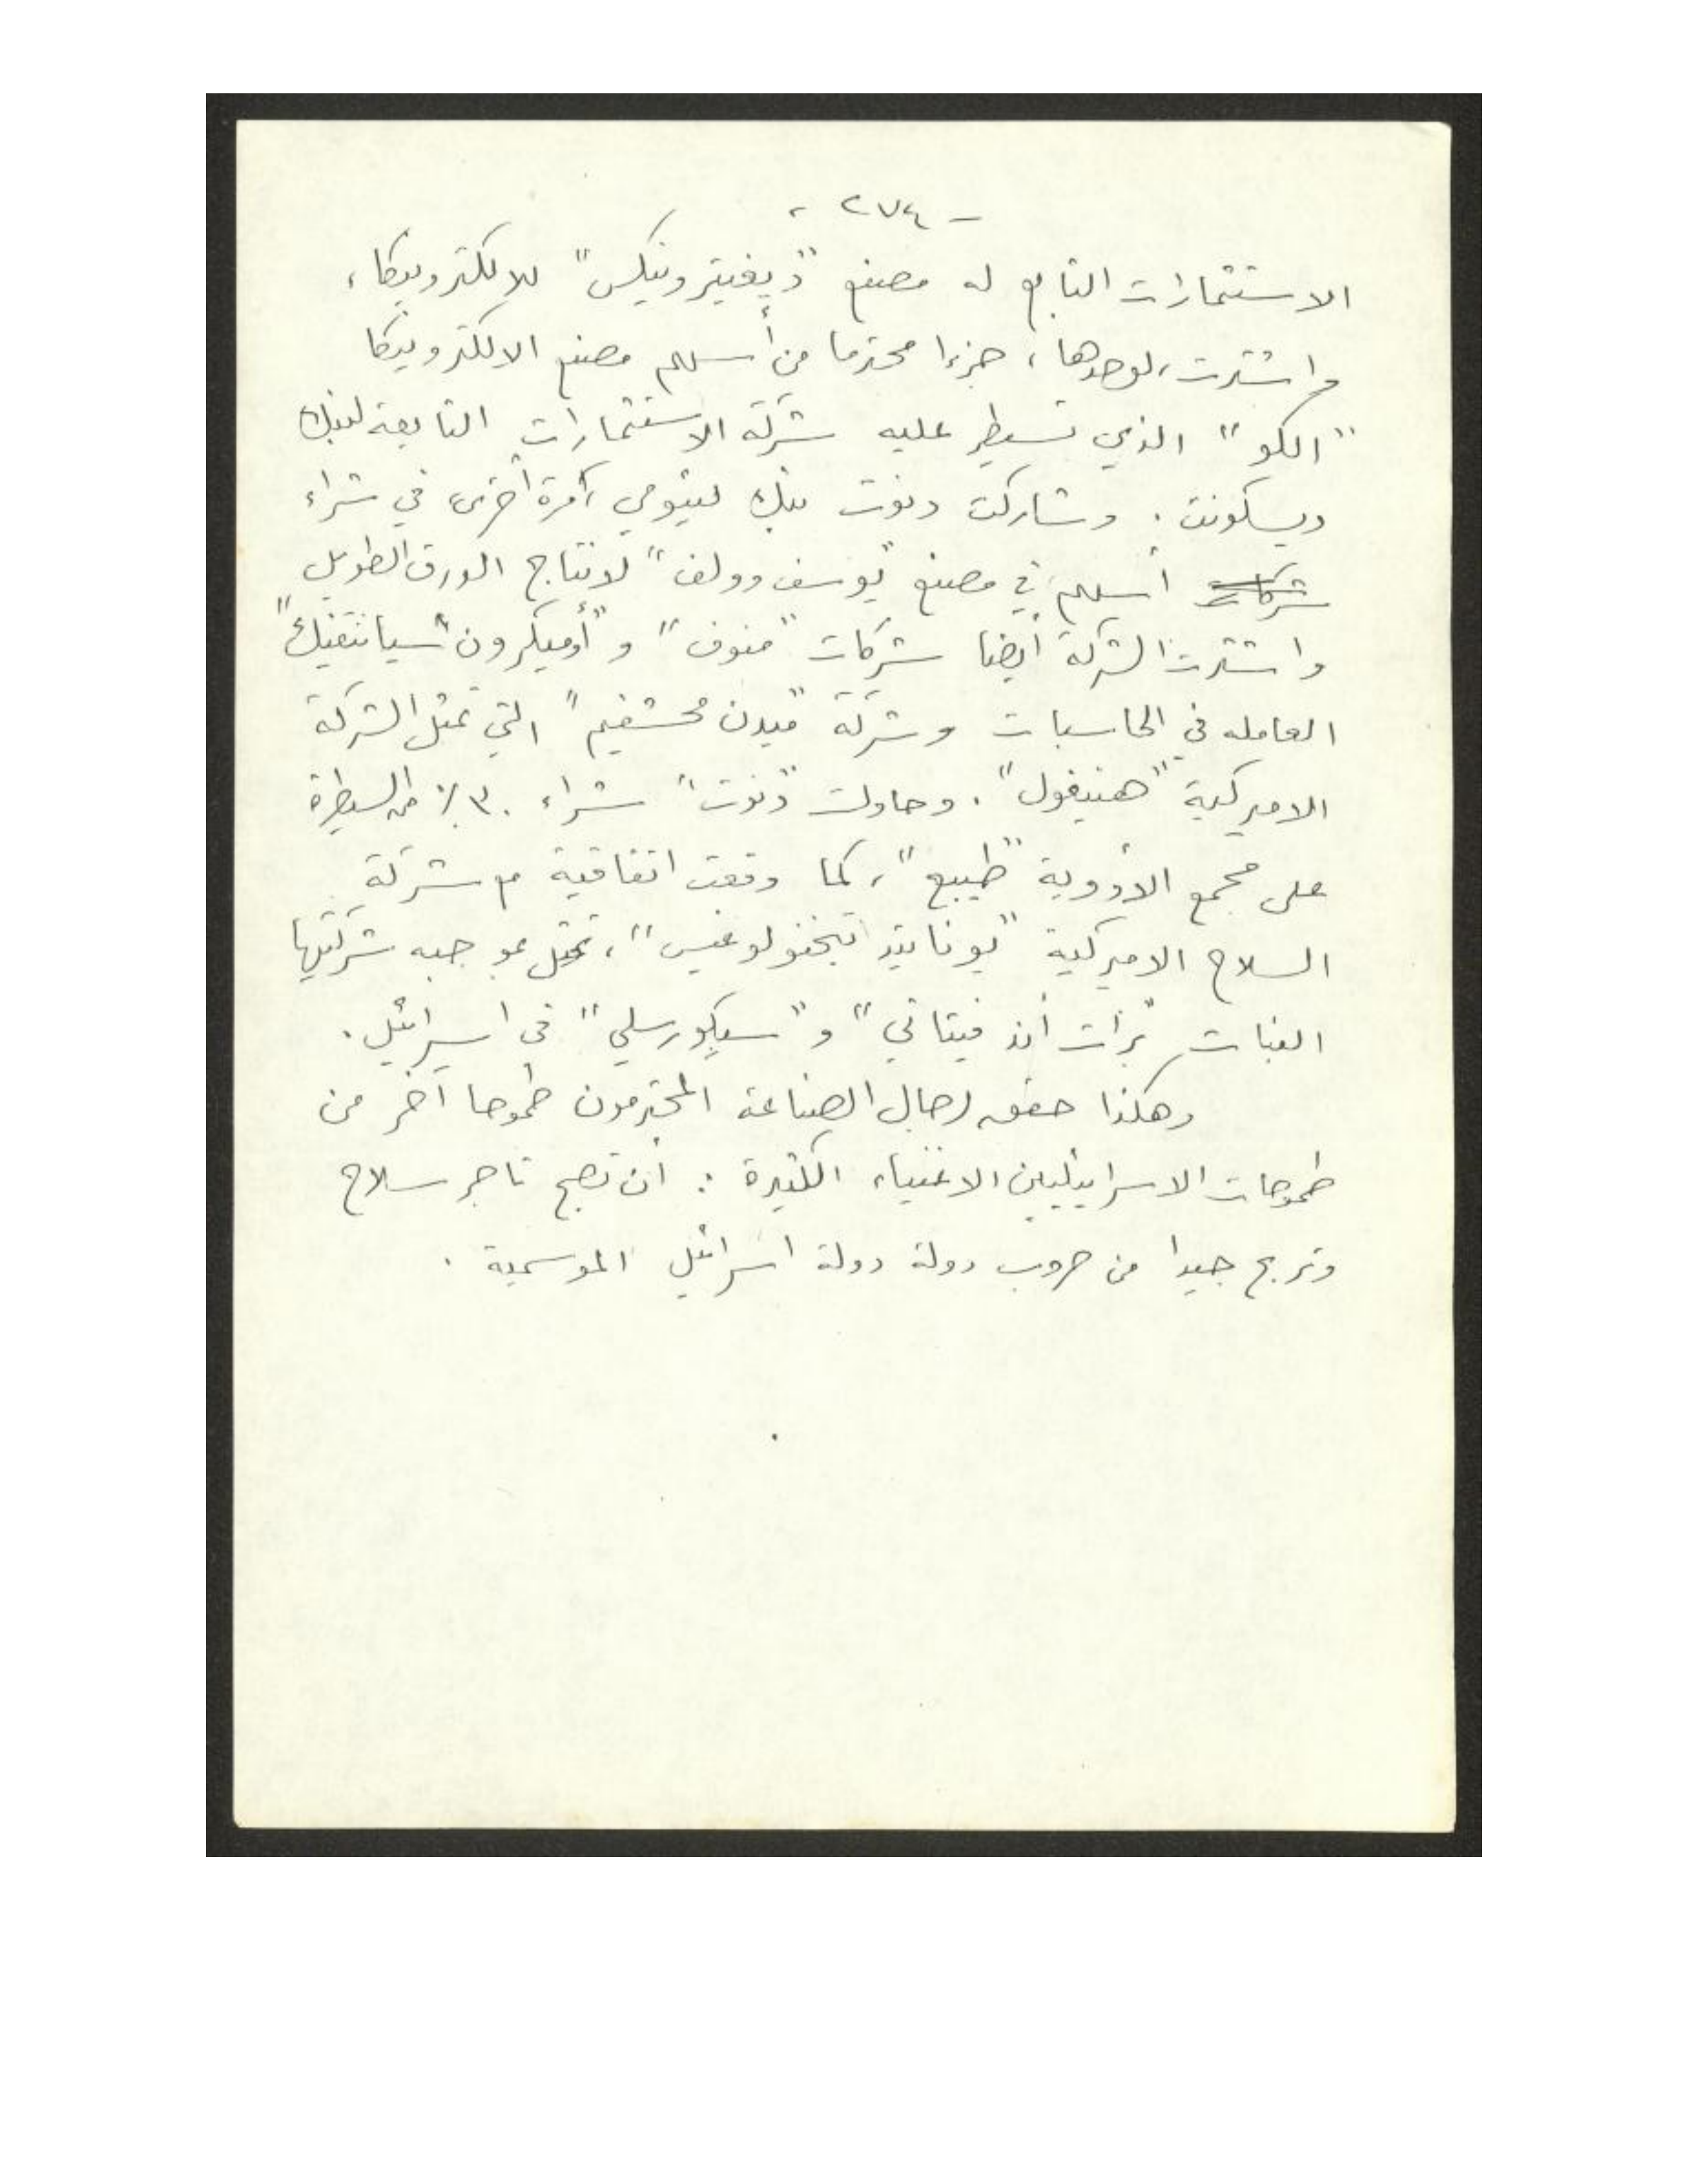 - ٢٧٤ -
الاستثمارات التابع له مصنع "ديفيترونيكس" للالكترونيكا،
واشترت، لوحدها، جزءا محترما من أسهم مصنع الالكترونيكا
"الكو" الذي تسيطر عليه شركة الاستثمارات التابعة لبنك
ديسكونت. وشاركت دنوت بنك ليئومي، مرة أخرى، في شراء
أسهم في مصنع "يوسف وولف" لانتاج الورق الطويل
واشترت الشركة أيضا شركات "منوف" و "أوميكرون" "سيانتفيك"
العامله في الحاسبات وشركة "ميدن محشفيم" التي تمثل الشركة
الاميركية "هنيغول". وحاولت "دنوت" شراء ٣٠٪ من السيطرة
على مجمع الأدوية "طيبع"، كما وقعت اتفاقية مع شركة
السلاح الاميركية "يونايتد تيخنولوغيس"، تمثل بموجبه شركتيها
البنات "برات أند فيتاني" و "سيكورسلي" في اسرائيل.
وهكذا حقق رجال الصناعة المحترمون طموحا آخر من
طموحات الاسرائيليين الاغنياء الكثيرة: أن تصبح تاجر سلاح
وتربح جيدا من حروب دولة دولة اسرائيل الموسمية.